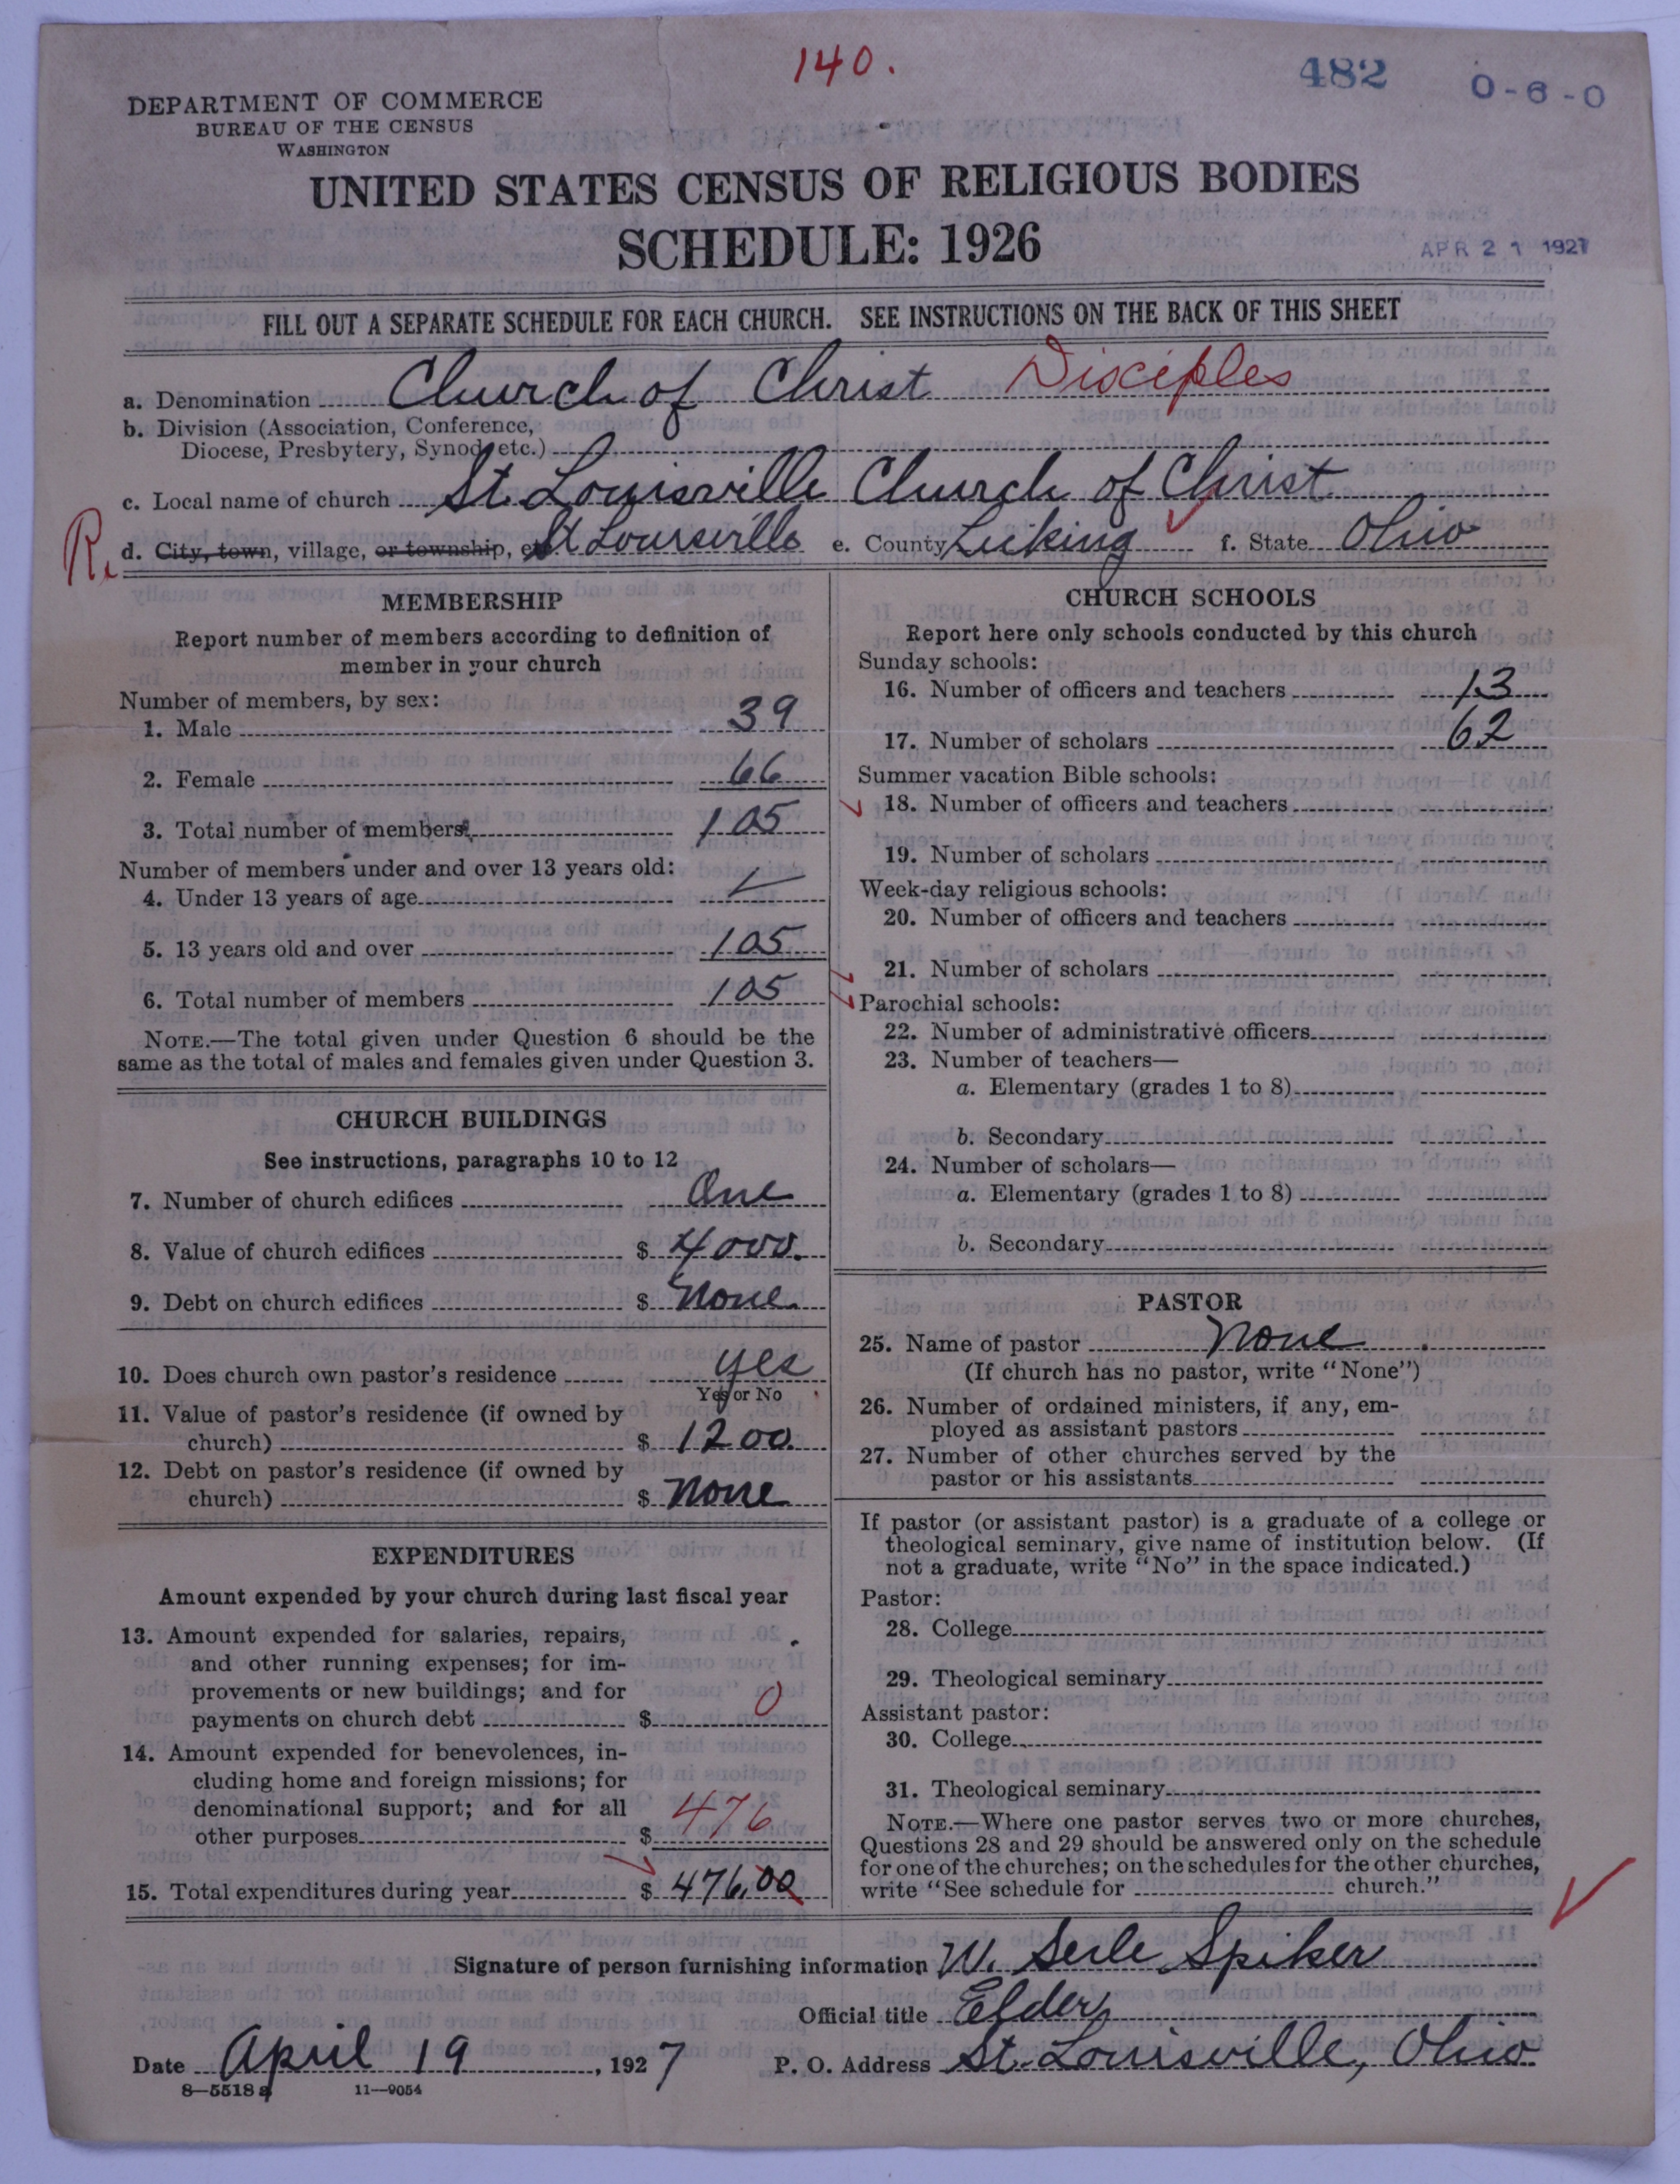 140.
482
0-6-0
DEPARTMENT OF COMMERCE
BUREAU OF THE CENSUS
WASHINGTON
UNITED STATES CENSUS OF RELIGIOUS BODIES
SCHEDULE: 1926
APR 21 1927
FILL OUT A SEPARATE SCHEDULE FOR EACH CHURCH. SEE INSTRUCTIONS ON THE BACK OF THIS SHEET
a. Denomination Church of Christ Disciples
b. Division (Association, Conference,
Diocese, Presbytery, Synod, etc.)
c. Local name of church St. Louisville Church of Christ
R. d. City, town, village, or township, St Louisville e. County Licking f. State Ohio
MEMBERSHIP
Report number of members according to definition of
member in your church
Number of members, by sex:
1. Male 39
2. Female 66
3. Total number of members 105
Number of members under and over 13 years old:
4. Under 13 years of age
5. 13 years old and over 105
6. Total number of members 105
NOTE.—The total given under Question 6 should be the
same as the total of males and females given under Question 3.
CHURCH BUILDINGS
See instructions, paragraphs 10 to 12
7. Number of church edifices One
8. Value of church edifices $ 4000.
9. Debt on church edifices $ None.
10. Does church own pastor's residence yes
Yes or No
11. Value of pastor's residence (if owned by
church) $ 1200.
12. Debt on pastor's residence (if owned by
church) $ None
EXPENDITURES
Amount expended by your church during last fiscal year
13. Amount expended for salaries, repairs,
and other running expenses; for im-
provements or new buildings; and for
payments on church debt $ 0
14. Amount expended for benevolences, in-
cluding home and foreign missions; for
denominational support; and for all
other purposes $ 476
15. Total expenditures during year $ 476.00
CHURCH SCHOOLS
Report here only schools conducted by this church
Sunday schools:
16. Number of officers and teachers 13
17. Number of scholars 62
Summer vacation Bible schools:
18. Number of officers and teachers
19. Number of scholars
Week-day religious schools:
20. Number of officers and teachers
21. Number of scholars
Parochial schools:
22. Number of administrative officers
23. Number of teachers—
a. Elementary (grades 1 to 8)
b. Secondary
24. Number of scholars—
a. Elementary (grades 1 to 8)
b. Secondary
PASTOR
25. Name of pastor None
(If church has no pastor, write "None")
26. Number of ordained ministers, if any, em-
ployed as assistant pastors
27. Number of other churches served by the
pastor or his assistants
If pastor (or assistant pastor) is a graduate of a college or
theological seminary, give name of institution below. (If
not a graduate, write "No" in the space indicated.)
Pastor:
28. College
29. Theological seminary
Assistant pastor:
30. College
31. Theological seminary
NOTE.—Where one pastor serves two or more churches,
Questions 28 and 29 should be answered only on the schedule
for one of the churches; on the schedules for the other churches,
write "See schedule for church."
Signature of person furnishing information W. Serle Spiker
Official title Elder
Date April 19, 1927 P. O. Address St. Louisville, Ohio
8—5518 a 11—9054